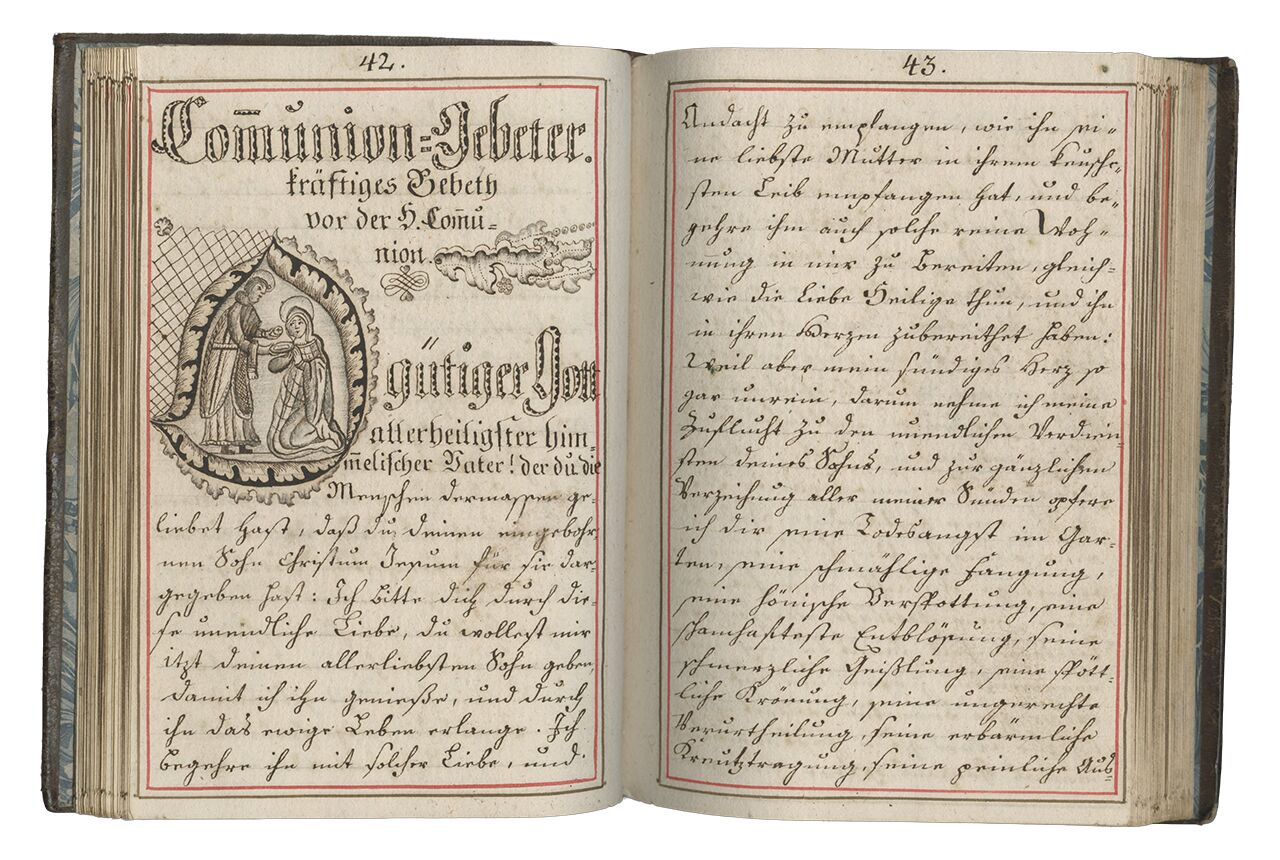 42.
Com̄union=Gebeter.
kräftiges Gebeth
vor der H. Com̄u=
nion.
O gütiger Gott
allerheiligster him-
m̄elischer Vater! der du die
Menschen dermassen ge-
liebet hast, daß du deinen eingebohr,
nen Sohn Christum Jesum für sie dar-
gegeben hast: Ich bitte dich durch die-
se unendliche Liebe, du wollest mir
itzt deinen allerliebsten Sohn geben,
damit ich ihn genieße, und durch
ihn das ewige Leben erlange. Ich
begehre ihn mit solcher Liebe, und
43.
Andacht zu empfangen, wie ihn sei=
ne liebste Mutter in ihrem keusche-
sten Leib empfangen hat, und be=
gehre ihm auch solche reine Woh=
nung in mir zu bereiten, gleich=
wie die liebe Heilige thun, und ihn
in ihren Herzen zubereithet haben:
Weil aber mein sündiges Herz so
gar unrein, darum nehme ich meine
Zuflucht zu den unendlichen Verdien-
sten deines Sohns, und zur gänzlichen
Verzeihung aller meiner Sünden opfere
ich dir seine Todesangst im Gar-
ten, seine schmählige Fangung,
seine hönische Verspottung, seine
schamhafteste Entblösung, seine
schmerzliche Geißlung, seine spött-
liche Krönung, seine ungerechte
Verurtheilung, seine erbärmliche
Kreutztragung, seine peinliche Aus-